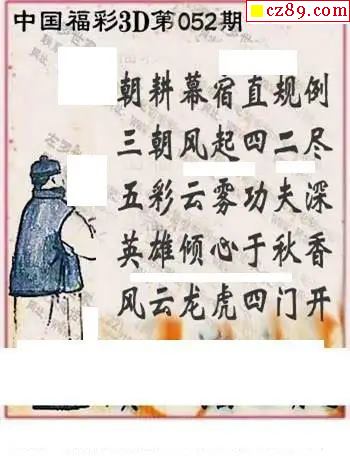 cz89.com
中国福彩3D第052期
朝耕幕宿直规例
三朝风起四二尽
五彩云雾功夫深
英雄倾心于秋香
风云龙虎四门开